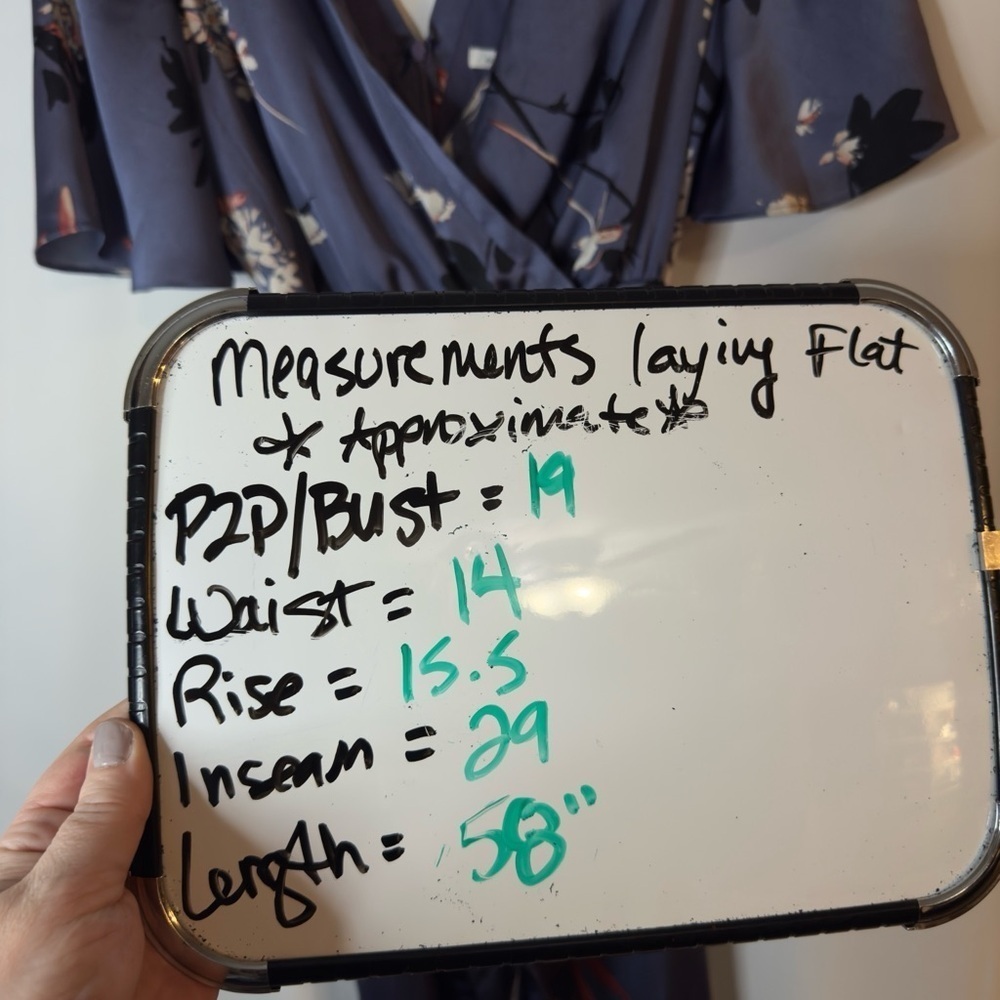 Measurements laying Flat
* Approximate *
P2P/Bust = 19
Waist = 14
Rise = 15.5
Inseam = 29
Length = 58"